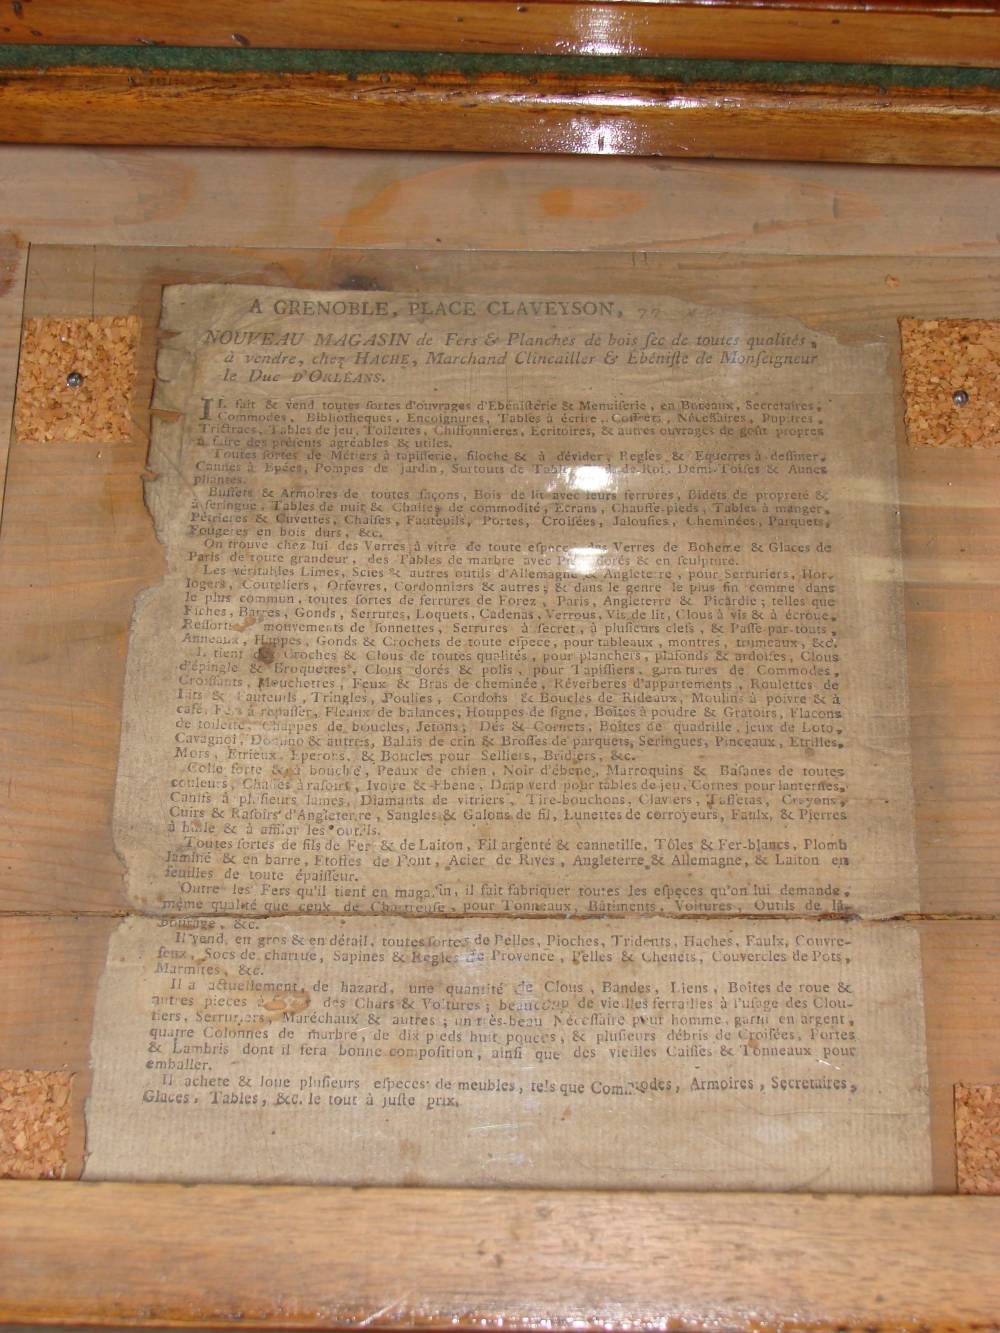 A GRENOBLE, PLACE CLAVEYSON, 77
NOUVEAU MAGASIN de Fers & Planches de bois ſec de toutes qualités,
à vendre, chez HACHE, Marchand Clincailler & Ebéniſte de Monſeigneur
le Duc D'ORLÉANS.
IL fait & vend toutes ſortes d'ouvrages d'Ebéniſterie & Menuiſerie, en Bureaux, Secretaires,
Commodes, Bibliotheques, Encoignures, Tables à écrire, Coffrets, Néceſſaires, Pupitres,
Trictracs, Tables de jeu, Toilettes, Chiffonnieres, Ecritoires, & autres ouvrages de goût propres
à faire des préſents agréables & utiles.
Toutes ſortes de Métiers à tapiſſerie, filoche & à dévider, Regles & Equerres à deſſiner,
Cannes à Epées, Pompes de jardin, Surtouts de Table, de Roi, Demi-Toiſes & Aunes
pliantes.
Buffets & Armoires de toutes façons, Bois de lit avec leurs ferrures, Bidets de propreté &
à ſeringue, Tables de nuit & Chaiſes de commodité, Ecrans, Chauffe-pieds, Tables à manger,
Pétrieres & Cuvettes, Chaiſes, Fauteuils, Portes, Croiſées, Jalouſies, Cheminées, Parquets,
Fougeres en bois durs, &c.
On trouve chez lui des Verres à vitre de toute eſpece, des Verres de Boheme & Glaces de
Paris de toute grandeur, des Tables de marbre avec Pieds dorés & en ſculpture.
Les véritables Limes, Scies & autres outils d'Allemagne & Angleterre, pour Serruriers, Hor-
logers, Couteliers, Orfevres, Cordonniers & autres; & dans le genre le plus fin comme dans
le plus commun, toutes ſortes de ferrures de Forez, Paris, Angleterre & Picardie; telles que
Fiches, Barres, Gonds, Serrures, Loquets, Cadenas, Verrous, Vis de lit, Clous à vis & à écroue,
Reſſorts & mouvements de ſonnettes, Serrures à ſecret, à pluſieurs clefs, & Paſſe-par-touts,
Anneaux, Happes, Gonds & Crochets de toute eſpece, pour tableaux, montres, trumeaux, &c.
Il tient des Croches & Clous de toutes qualités, pour planchers, plafonds & ardoiſes, Clous
d'épingle & Broquettes, Clous dorés & polis, pour Tapiſſiers, garnitures de Commodes,
Croiſſants, Mouchettes, Feux & Bras de cheminée, Réverberes d'appartements, Roulettes de
Lits & Fauteuils, Tringles, Poulies, Cordons & Boucles de Rideaux, Moulins à poivre & à
café, Fers à repaſſer, Fleaux de balances, Houppes de ſigne, Boîtes à poudre & Gratoirs, Flacons
de toilette, Chappes de boucles, Jetons; Dés & Cornets, Boîtes de quadrille, jeux de Loto,
Cavagnol, Domino & autres, Balais de crin & Broſſes de parquets, Seringues, Pinceaux, Etrilles,
Mors, Etrieux, Eperons, & Boucles pour Selliers, Bridiers, &c.
Colle forte & à bouche, Peaux de chien, Noir d'ébene, Marroquins & Baſanes de toutes
couleurs, Chaſſes à raſoirs, Ivoire & Ebene, Drap verd pour tables de jeu, Cornes pour lanternes,
Canifs à pluſieurs lames, Diamants de vitriers, Tire-bouchons, Claviers, Taffetas, Crayons,
Cuirs & Raſoirs d'Angleterre, Sangles & Galons de fil, Lunettes de corroyeurs, Faulx, & Pierres
à huile & à affiler les outils.
Toutes ſortes de fils de Fer & de Laiton, Fil argenté & cannetille, Tôles & Fer-blancs, Plomb
laminé & en barre, Etoffes de Pont, Acier de Rives, Angleterre & Allemagne, & Laiton en
feuilles de toute épaiſſeur.
Outre les Fers qu'il tient en magaſin, il fait fabriquer toutes les eſpeces qu'on lui demande,
même qualité que ceux de Chartreuſe, pour Tonneaux, Bâtiments, Voitures, Outils de la-
bourage, &c.
Il vend, en gros & en détail, toutes ſortes de Pelles, Pioches, Tridents, Haches, Faulx, Couvre-
feux, Socs de charrue, Sapines & Regles de Provence, Pelles & Chenets, Couvercles de Pots,
Marmites, &c.
Il a actuellement, de hazard, une quantité de Clous, Bandes, Liens, Boîtes de roue &
autres pieces à des Chars & Voitures; beaucoup de vieilles ferrailles à l'uſage des Clou-
tiers, Serruriers, Maréchaux & autres; un très-beau Néceſſaire pour homme, garni en argent,
quatre Colonnes de marbre, de dix pieds huit pouces, & pluſieurs débris de Croiſées, Portes
& Lambris dont il fera bonne compoſition, ainſi que des vieilles Caiſſes & Tonneaux pour
emballer.
Il achete & loue pluſieurs eſpeces de meubles, tels que Commodes, Armoires, Secretaires,
Glaces, Tables, &c. le tout à juſte prix.